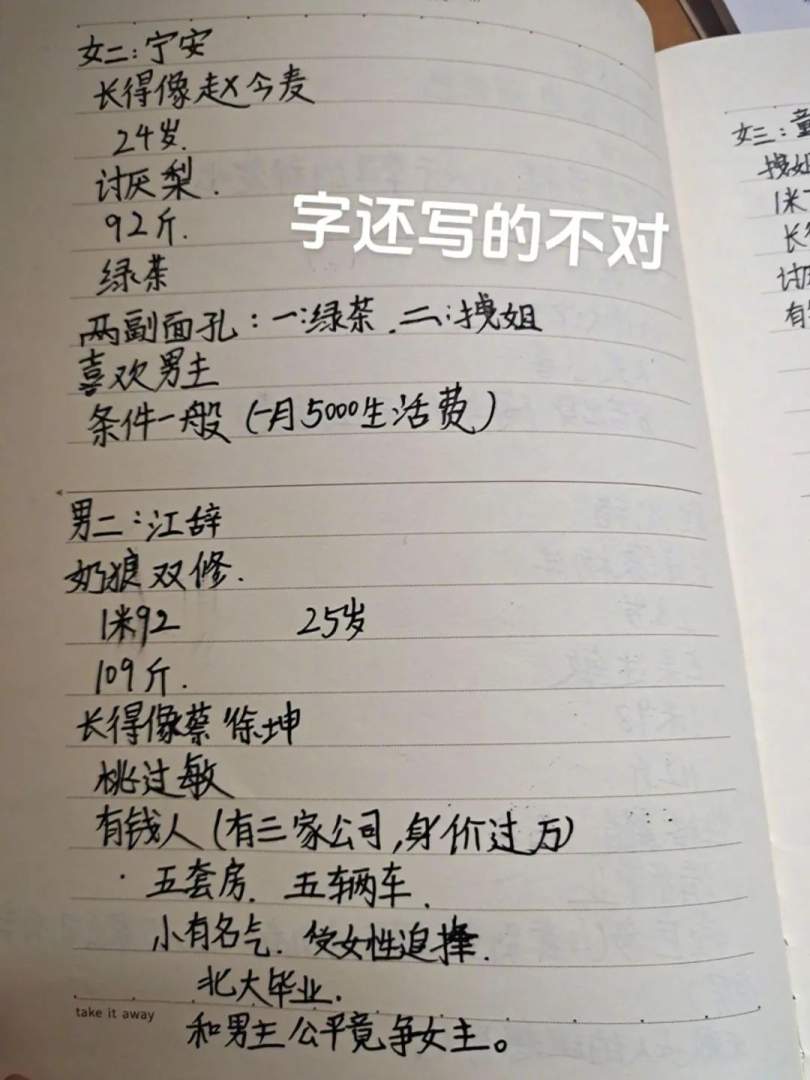 女二：宁安
长得像赵今麦
24岁.
讨厌梨.
92斤.
绿茶
两副面孔：一：绿茶.二：拽姐
喜欢男主
条件一般（一月5000生活费）
字还写的不对
男二：江辞
奶狼双修.
1米92 25岁
109斤.
长得像蔡徐坤
桃过敏
有钱人（有三家公司,身价过万）
五套房. 五辆车.
小有名气. 受女性追捧.
北大毕业.
和男主公平竞争女主。
take it away
女三：童
拽姐
1米
长得
讨厌
有钱